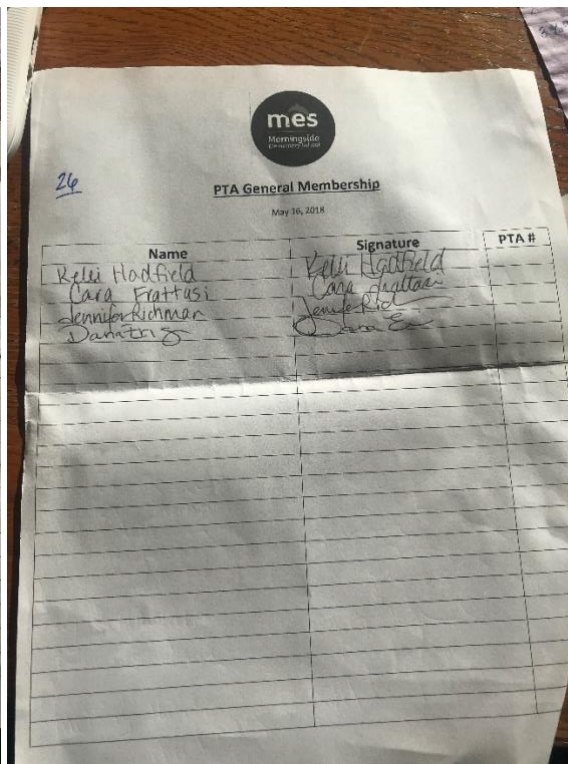 mes
Morningside
Elementary School
26
PTA General Membership
May 16, 2018
Name Signature PTA #
Kelli Hadfield Kelli Hadfield
Cara Frattasi Cara Frattasi
Jennifer Richman
Dana